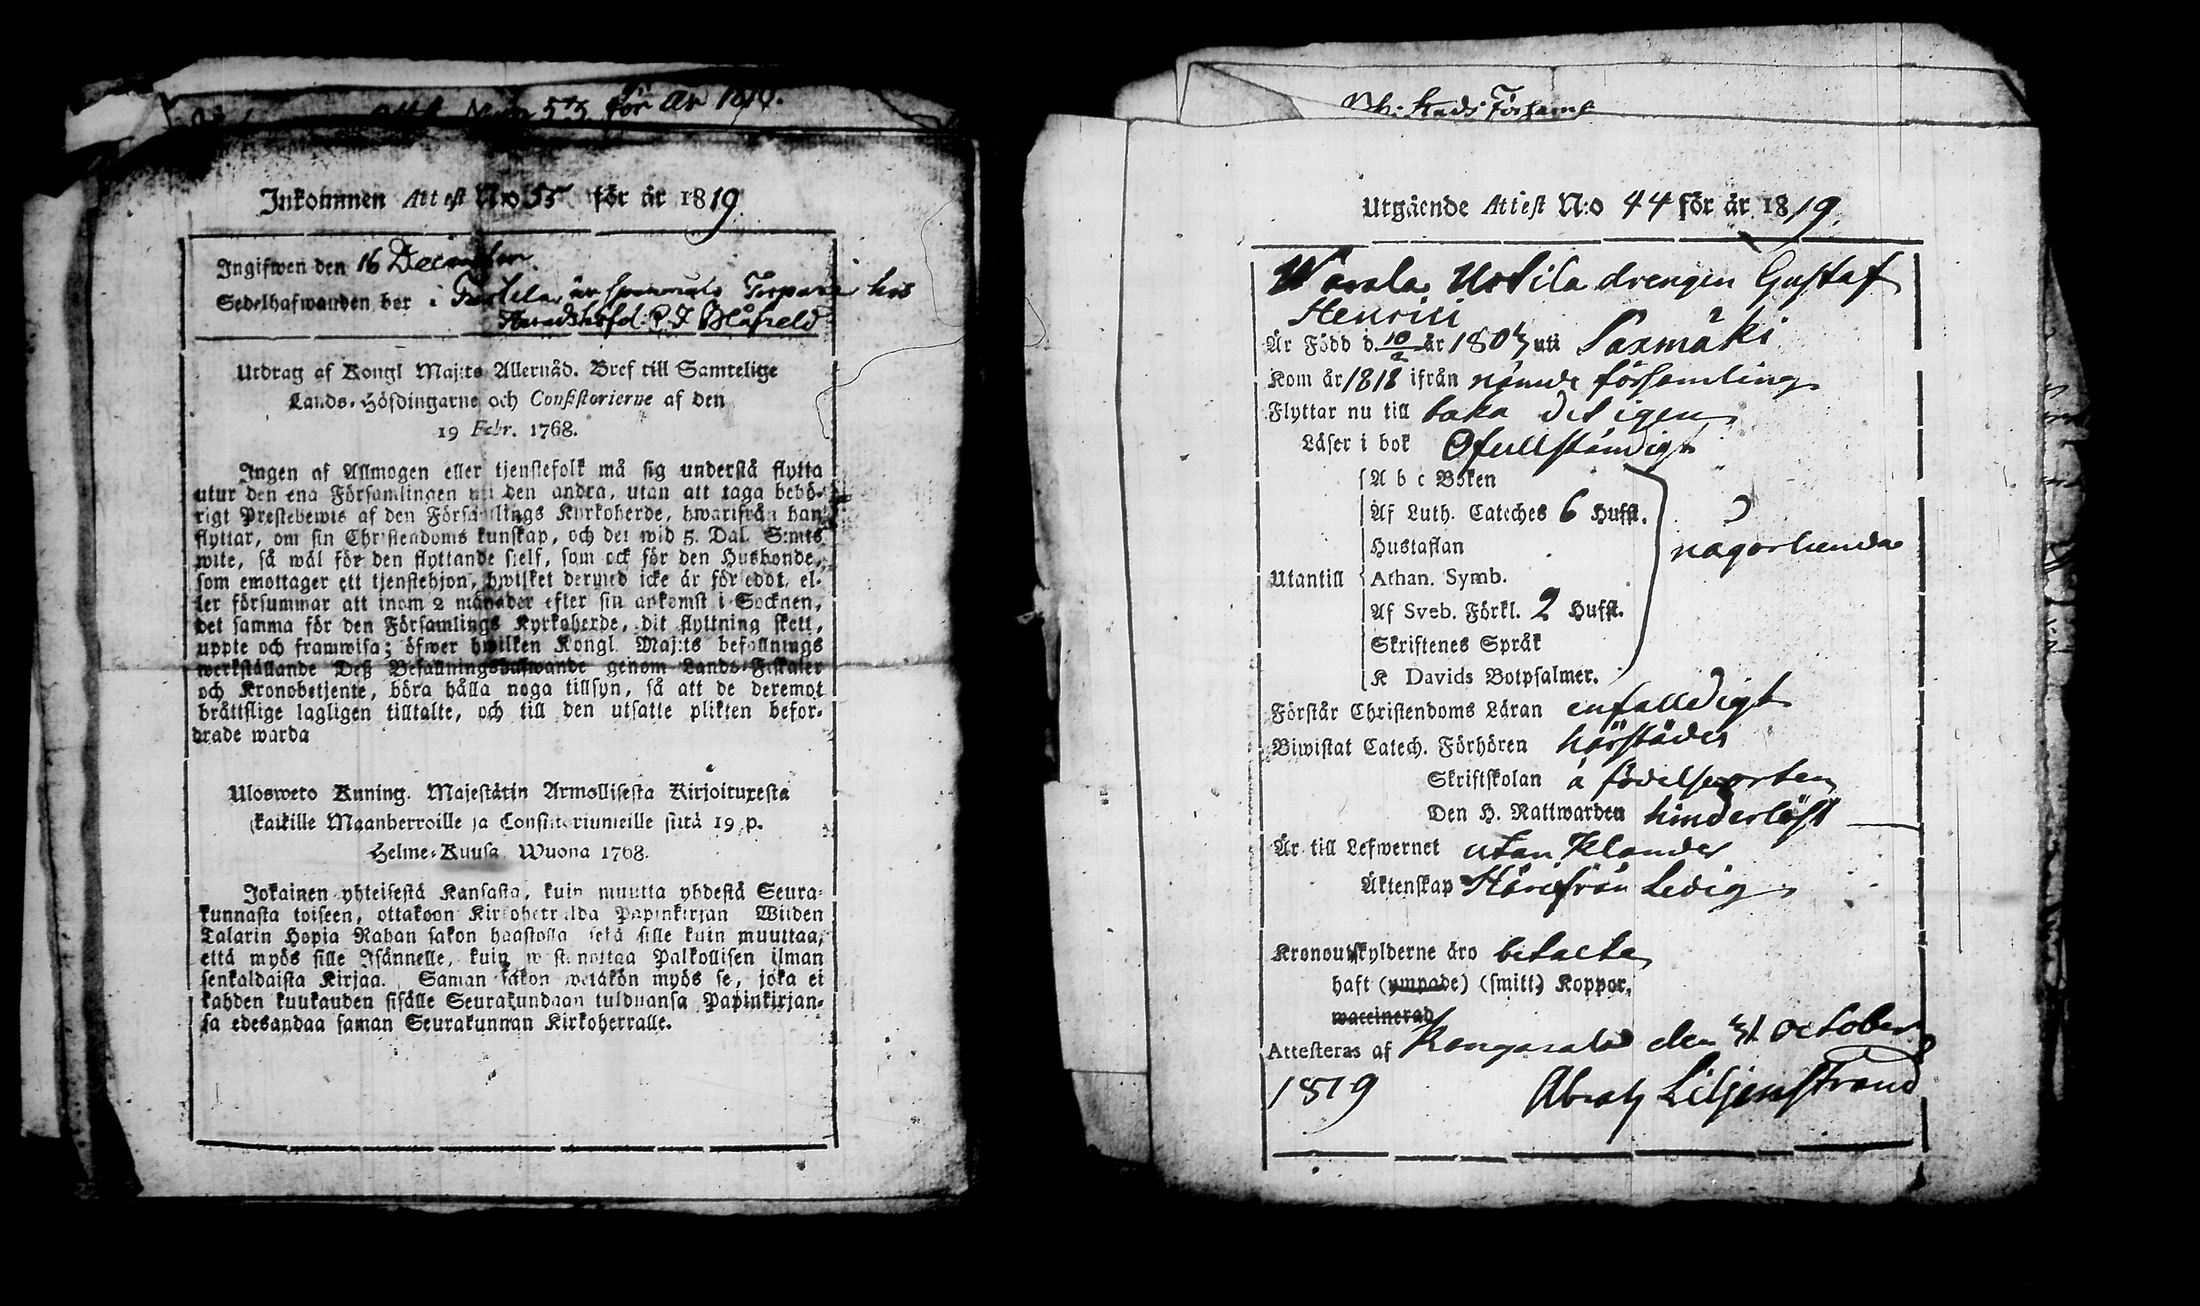 för år 1819.
Inkommen Attest N:o 55 för år 1819
Ingifwen den 16 December
Sedelhafwanden bor i är Torpare hos
Häradshöfd: Blåfield
Utdrag af Kongl Maj:ts Allernåd. Bref till Samtelige
Lands-Höfdingarne och Consistorierne af den
19 Febr. 1768.
Ingen af Allmogen eller tjenstefolk må sig understå flytta
utur den ena Församlingen uti den andra, utan att taga behö-
rigt Prestebewis af den Församlings Kyrkoherde, hwarifrån han
flyttar, om sin Christendoms kunskap, och det wid 5. Dal. S:mts
wite, så wäl för den flyttande sielf, som ock för den Husbonde,
som emottager ett tjenstehjon, hwilket dermed icke är försedot, el-
ler försummar att inom 2 månader efter sin ankomst i Socknen,
det samma för den Församlings Kyrkoherde, dit flyttning skett,
uppte och framwisa; öfwer hwilken Kongl Maj:ts befallnings
werkställande Deß Befallningshafwande genom Lands-Fiskaler
och Kronobetjente, böra hålla noga tillsyn, så att de deremot
bråttslige lagligen tilltalte, och till den utsatte plikten befor-
drade warda
Ulosweto Kuning. Majestätin Armollisesta Kirjoituxesta
kaikille Maanherroille ja Consistoriumeille siitä 19 p.
Helme-Kuusa Wuona 1768.
Jokainen yhteisestä Kansasta, kuin muutta yhdestä Seura-
kunnasta toiseen, ottakoon Kirkoherralda Papinkirjan Wiiden
Talarin Hopia Rahan sakon haastolla sekä sille kuin muuttaa,
että myös sille Isännelle, kuin wastanottaa Palkollisen ilman
senkaldaista Kirjaa. Saman sakon wetäkön myös se, joka ei
kahden kuukauden sisälle Seurakundaan tulduansa Papinkirjan-
sa edesandaa saman Seurakunnan Kirkoherralle.
Stads Församl
Utgående Attest N:o 44 för år 1819.
Warala Uotila drengen Gustaf
Henrici
Är Född d. 10/2 år 1803 uti Saxmäki
Kom år 1818 ifrån nämde församling
Flyttar nu till baka dit igen
Läser i bok Ofullständigt
A b c Boken
Af Luth. Cateches 6 Hufst.
Hustaflan
någorlunda
Utantill Athan. Symb.
Af Sveb. Förkl. 2 Hufst.
Skriftenes Språk
K Davids Botpsalmer.
Förstår Christendoms Läran enfalldigt
Biwistat Catech. Förhören härstädes
Skriftskolan å födelseorten
Den H. Nattwarden hinderlöst
Är till Lefwernet utan klander
Äktenskap Härifrån Ledig
Kronoutskylderne äro betalte
haft (ympade) (smitt) Koppor,
waccinerad
Attesteras af Kangasala den 31 October
1819 Abrah Liljenstrand